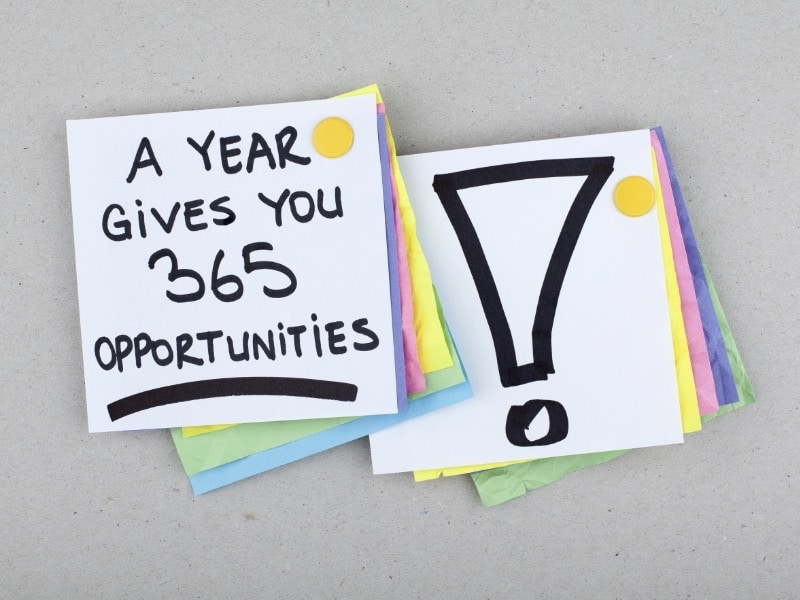 A YEAR
GIVES YOU
365
OPPORTUNITIES
!